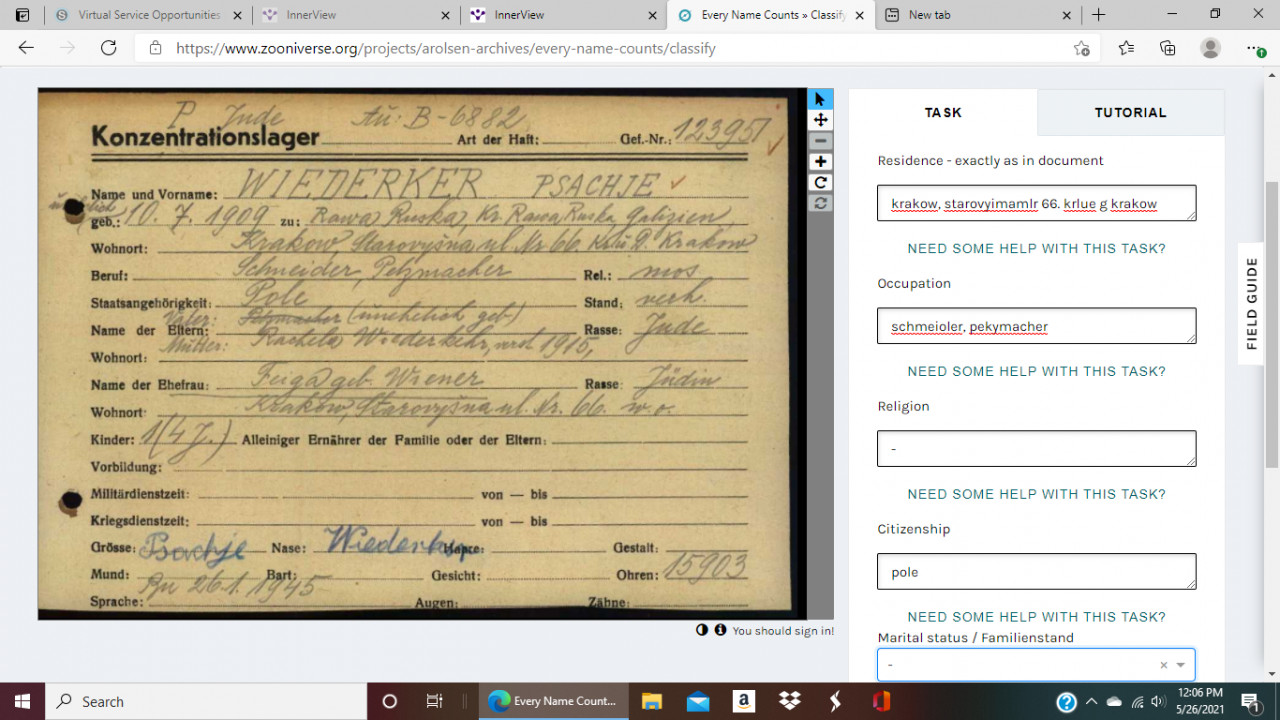 Virtual Service Opportunities
InnerView
InnerView
Every Name Counts » Classify
New tab
https://www.zooniverse.org/projects/arolsen-archives/every-name-counts/classify
P Jude Au: B-6882
Konzentrationslager Art der Haft: Gef.-Nr.: 123951
Name und Vorname: WIEDERKER PSACHJE
geb.: 10. 7. 1909 zu: Rawa Ruska, Kr. Rawa Ruska, Galizien
Wohnort: Krakow, Starovyšna ul. Nr. 66. Krakow
Beruf: Schneider, Pelzmacher Rel.: mos
Staatsangehörigkeit: Pole Stand: verh.
Vater: (unehelich geb)
Name der Eltern: Rasse: Jude
Mutter: Rachela Wiederkehr, 1915,
Wohnort:
Name der Ehefrau: Feiga geb. Wiener Rasse: Jüdin
Wohnort: Krakow, Starovyšna ul. Nr. 66. w. o.
Kinder: 1 (4 J.) Alleiniger Ernährer der Familie oder der Eltern:
Vorbildung:
Militärdienstzeit: von — bis
Kriegsdienstzeit: von — bis
Grösse: Psachje Nase: Haare: Gestalt:
Mund: Bart: Gesicht: Ohren: 15903
Bu 26.1.1945
Sprache: Augen: Zähne:
You should sign in!
TASK
TUTORIAL
Residence - exactly as in document
krakow, starovyimamlr 66. krlue g krakow
NEED SOME HELP WITH THIS TASK?
Occupation
schmeioler, pekymacher
NEED SOME HELP WITH THIS TASK?
Religion
-
NEED SOME HELP WITH THIS TASK?
Citizenship
pole
NEED SOME HELP WITH THIS TASK?
Marital status / Familienstand
-
FIELD GUIDE
Search
Every Name Count...
12:06 PM
5/26/2021